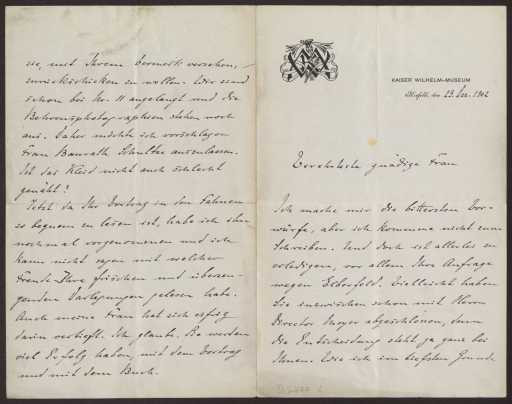 KAISER WILHELM-MUSEUM
den 23. Dez. 1902
Verehrteste gnädige Frau
Ich mache mir die bittersten Vor-
würfe, aber ich komme nicht zum
Schreiben. Und doch ist allerlei zu
erledigen, vor allem Ihre Anfrage
wegen Elberfeld. Vielleicht haben
Sie inzwischen schon mit Herrn
Director abgeschlossen, denn
die Entscheidung steht ja ganz bei
Ihnen. Wie ich im tiefsten Grunde
sie, mit Ihrem Vermerk versehen,
zurückschicken zu wollen. Wir sind
schon bei No. 11 angelangt und die
Behrensphotographieen stehen noch
aus. Daher möchte ich vorschlagen
Frau Baurath Schultze auszulassen.
Ist das Kleid nicht auch schlecht
genäht?
Jetzt da Ihr Vortrag in den Fahnen
so bequem zu lesen ist, habe ich ihn
nochmal vorgenommen und ich
kann nicht sagen mit welcher
Freude Ihre frischen und überzeu-
genden Darlegungen gelesen habe.
Auch meine Frau hat sich eifrig
darin vertieft. Ich glaube, Sie werden
viel Erfolg haben, mit dem Vortrag
und mit dem Buch.